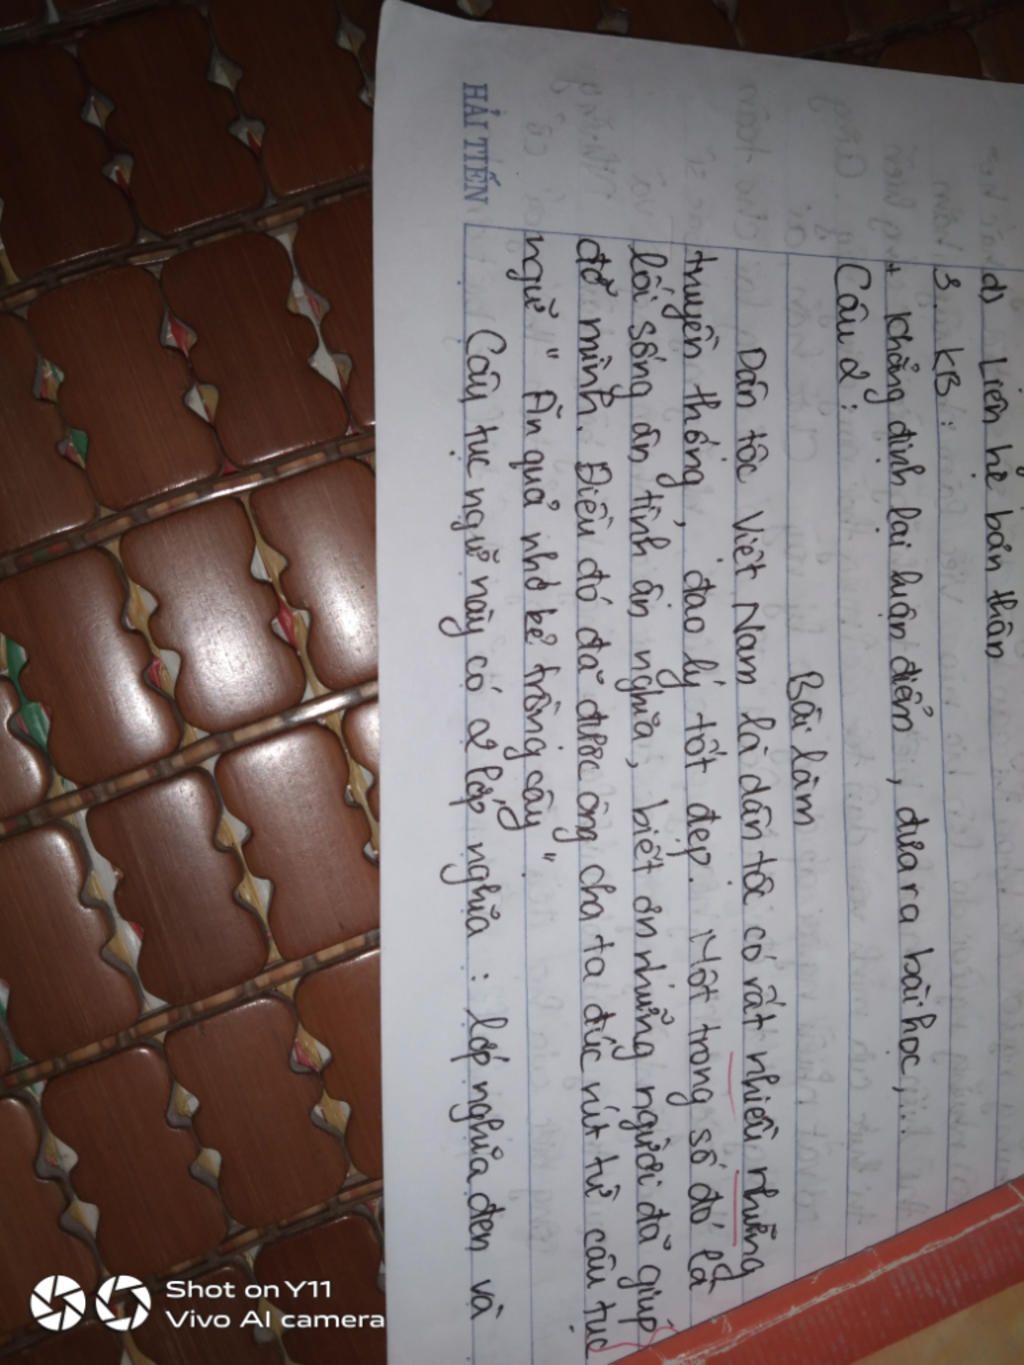 HẢI TIẾN
d) Liên hệ bản thân
3. KB:
+ Khẳng định lại luận điểm, đưa ra bài học,...
Câu 2:
Bài làm
Dân tộc Việt Nam là dân tộc có rất nhiều những
truyền thống, đạo lý tốt đẹp. Một trong số đó là
lối sống ân tình ân nghĩa, biết ơn những người đã giúp
đỡ mình. Điều đó đã được ông cha ta đúc rút từ câu tục
ngữ "Ăn quả nhớ kẻ trồng cây".
Câu tục ngữ này có 2 lớp nghĩa: lớp nghĩa đen và
Shot on Y11
Vivo AI camera